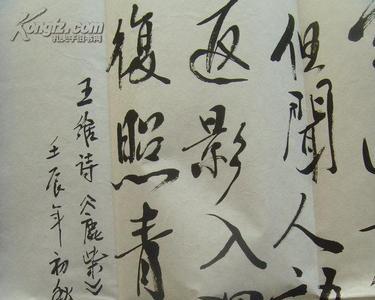 但聞人語
返影入深
復照青
王維诗《鹿柴》
壬辰年初秋
Kongfz.com
孔夫子旧书网